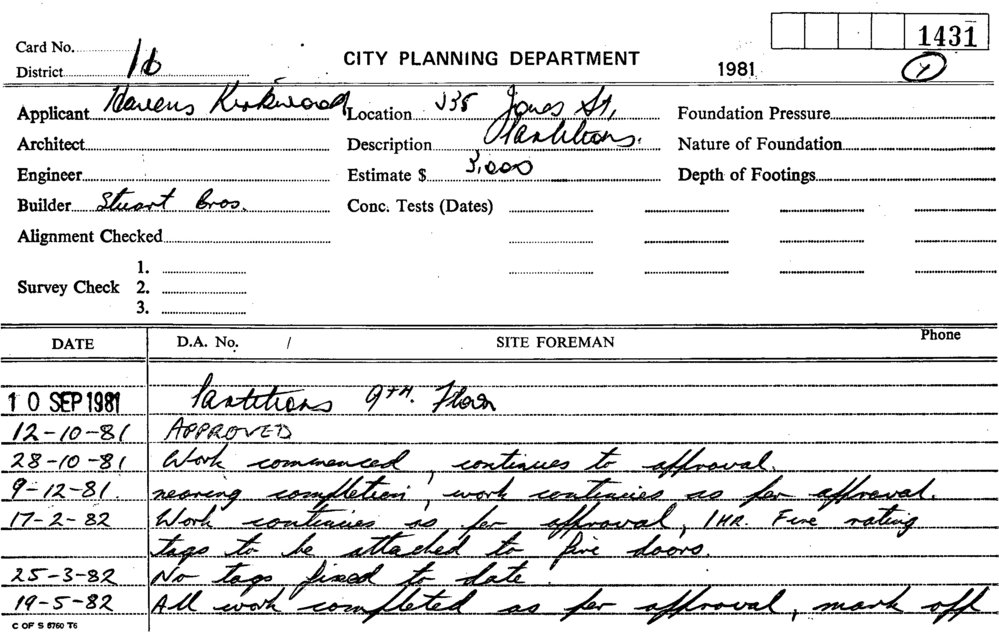 1431
Card No.
District 16
CITY PLANNING DEPARTMENT
1981
Y
Applicant Havens Kirkwood Location 535 Jones St,
Foundation Pressure
Architect Description Partitions. Nature of Foundation
Engineer Estimate $ 3,000 Depth of Footings
Builder Stuart Bros. Conc. Tests (Dates)
Alignment Checked
1.
Survey Check 2.
3.
DATE D.A. No. / SITE FOREMAN Phone
10 SEP 1981 Partitions 9TH. Floor
12-10-81 APPROVED
28-10-81 Work commenced, continues to approval.
9-12-81. nearing completion, work continues as per approval.
17-2-82 Work continues as per approval, 1HR. Fire rating
tags to be attached to fire doors.
25-3-82 No tags fixed to date.
19-5-82 All work completed as per approval, mark off
C OF S 8760 T6